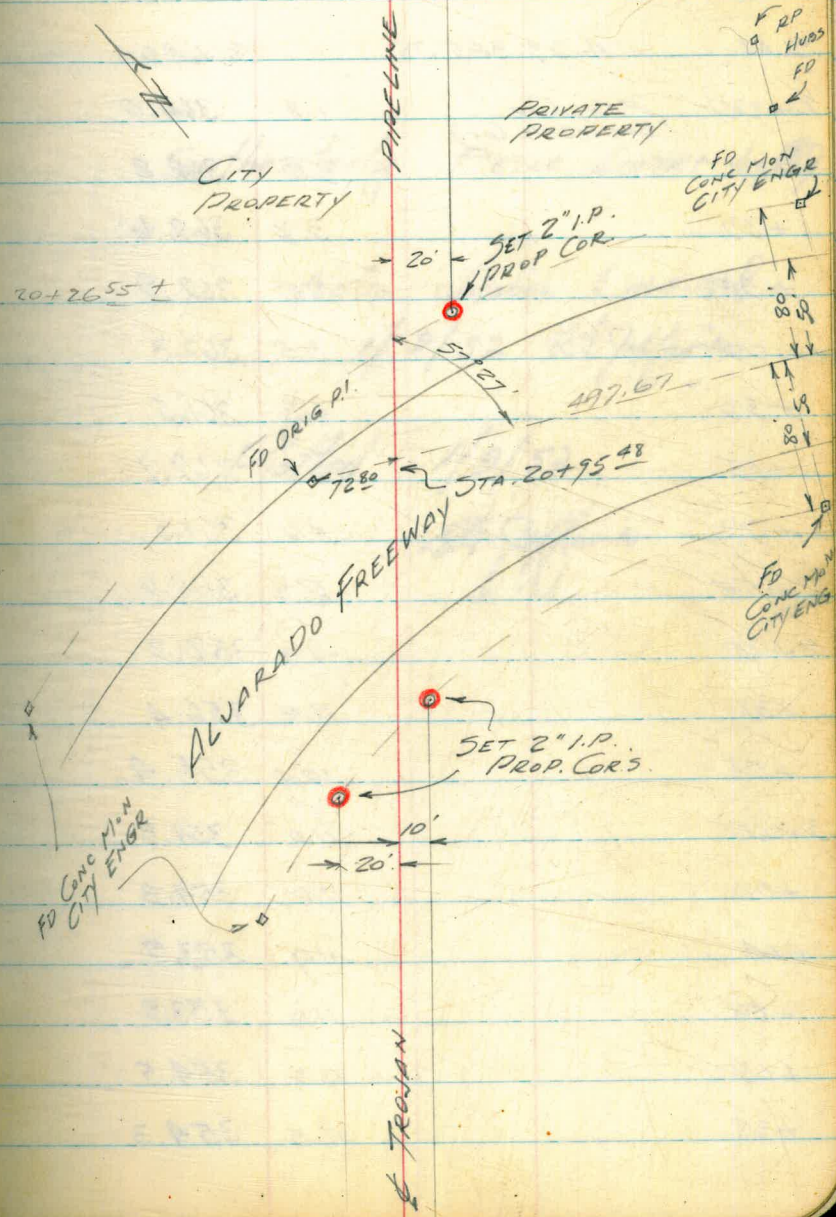 N
PIPELINE
RP
HUBS
FD
PRIVATE
PROPERTY
CITY
PROPERTY
FD
CONC MON
CITY ENGR
20'
SET 2" I.P.
PROP COR.
20+26 55 ±
80'
50'
57°27'
497.67
50'
80'
FD ORIG P.I.
72 80
STA. 20+95 48
ALVARADO FREEWAY
FD
CONC MON
CITY ENG
SET 2" I.P.
PROP. CORS.
10'
20'
FD CONC MON
CITY ENGR
℄ TROJAN